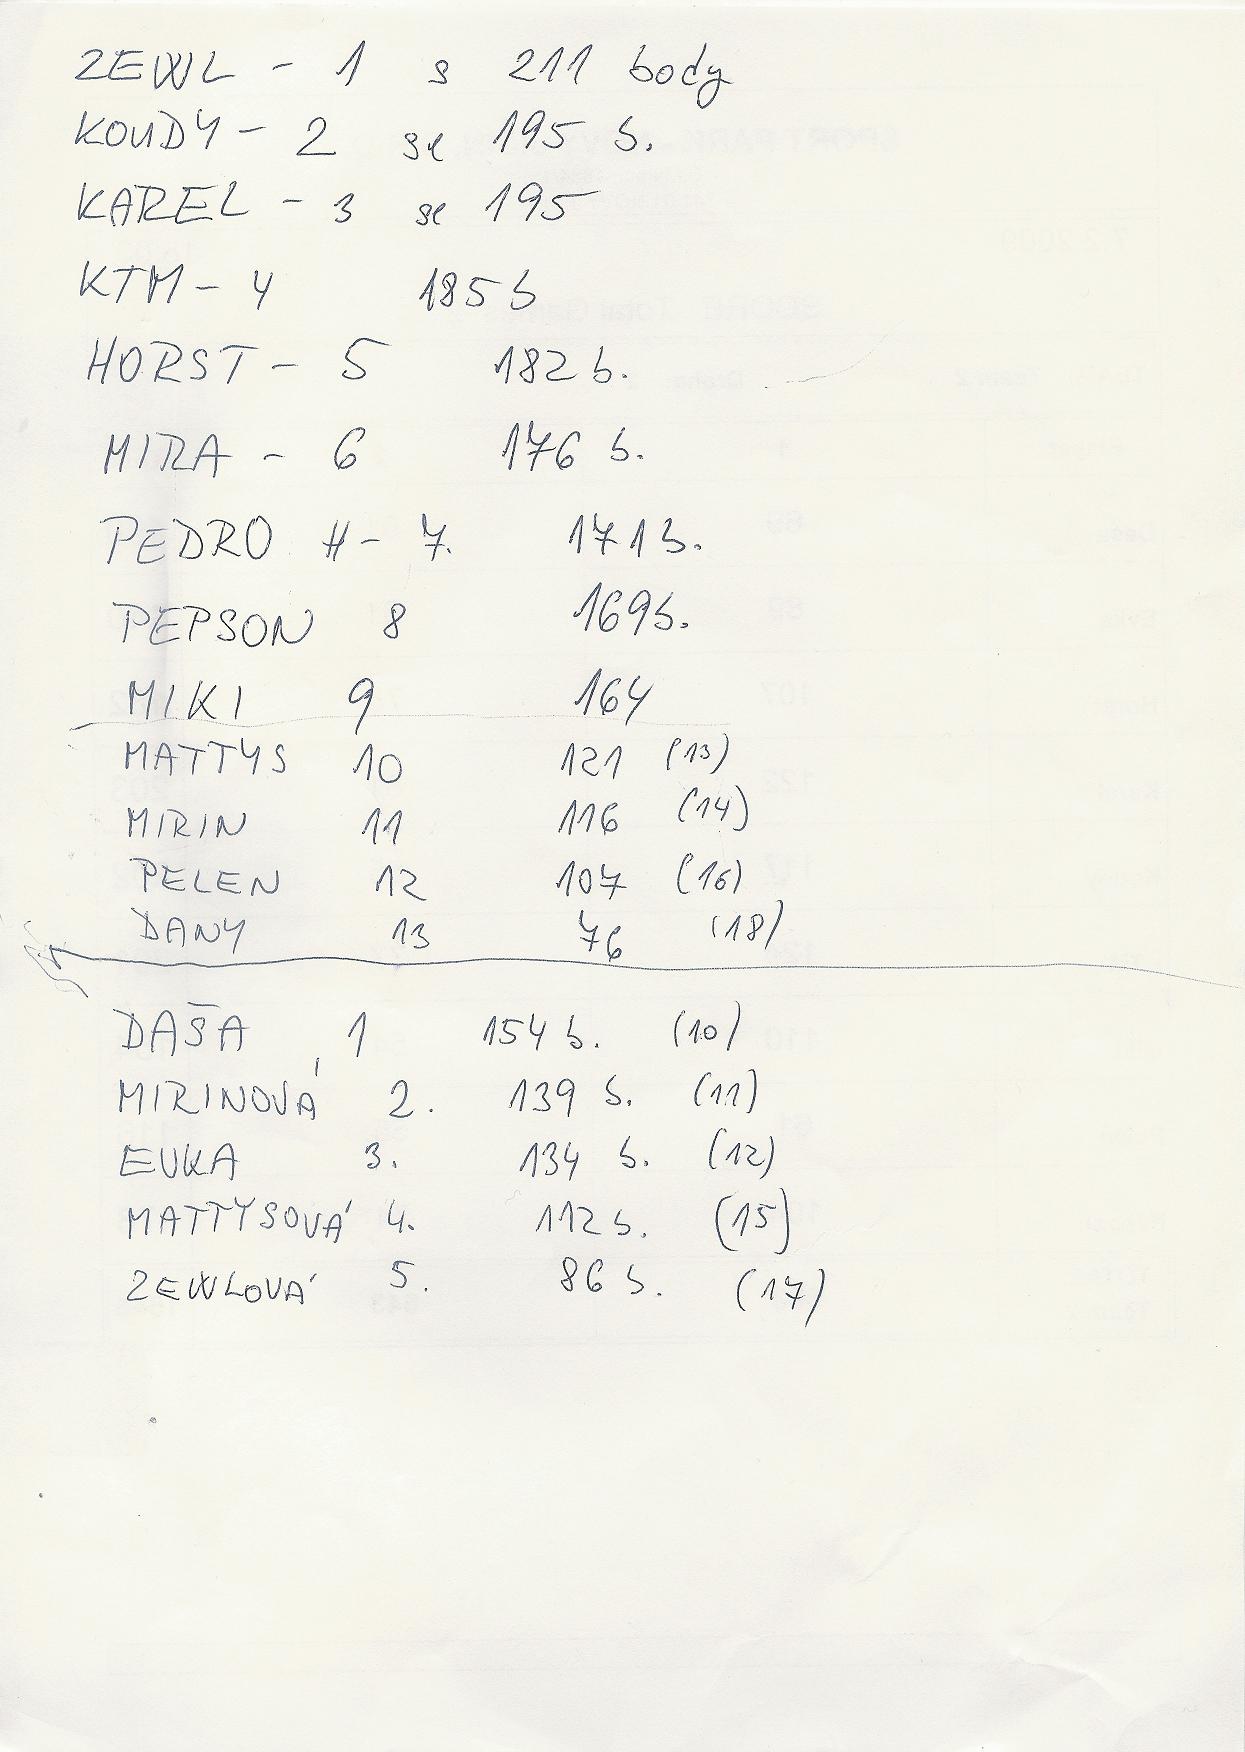 ZEWL - 1 s 211 body
KOUDY - 2 se 195 b.
KAREL - 3 se 195
KTM - 4 185 b
HORST - 5 182 b.
MIRA - 6 176 b.
PEDRO H - 7. 171 b.
PEPSON 8 169 b.
MIKI 9 164
MATTYS 10 121 (13)
MIRIN 11 116 (14)
PELEN 12 107 (16)
DANY 13 76 (18)
DAŠA 1 154 b. (10)
MIRINOVÁ 2. 139 b. (11)
EVKA 3. 134 b. (12)
MATTYSOVÁ 4. 112 b. (15)
ZEWLOVÁ 5. 86 b. (17)